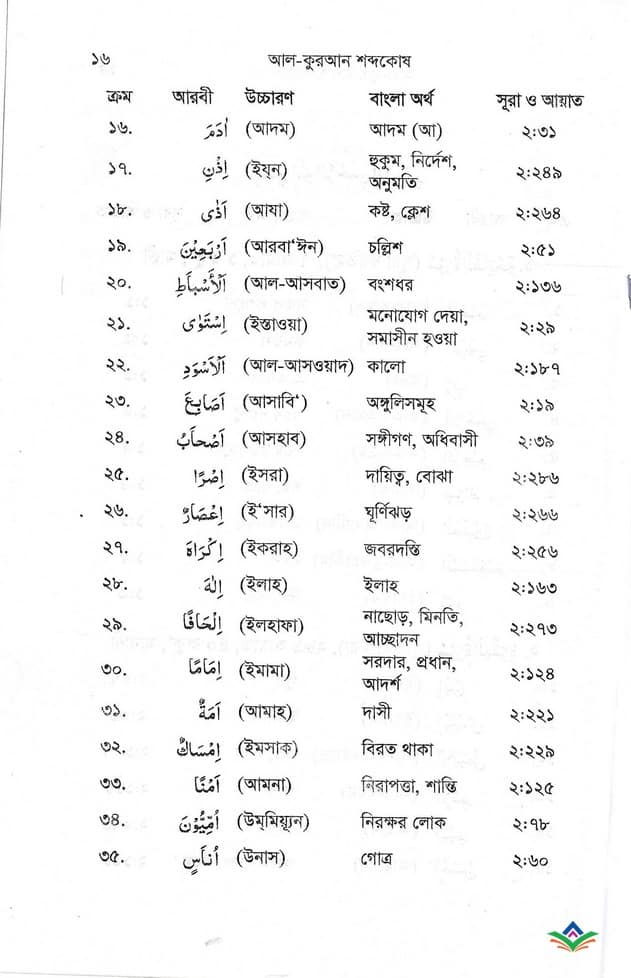 ১৬ আল-কুরআন শব্দকোষ
ক্রম আরবী উচ্চারণ বাংলা অর্থ সূরা ও আয়াত
১৬. اٰدَمَ (আদম) আদম (আ) ২:৩১
১৭. اِذْنِ (ইয্ন) হুকুম, নির্দেশ, ২:২৪৯
অনুমতি
১৮. اَذٰى (আযা) কষ্ট, ক্লেশ ২:২৬৪
১৯. اَرْبَعِيْنَ (আরবা‘ঈন) চল্লিশ ২:৫১
২০. اَلْاَسْبَاطِ (আল-আসবাত) বংশধর ২:১৩৬
২১. اِسْتَوٰى (ইস্তাওয়া) মনোযোগ দেয়া, ২:২৯
সমাসীন হওয়া
২২. اَلْاَسْوَدِ (আল-আসওয়াদ) কালো ২:১৮৭
২৩. اَصَابِعَ (আসাবি‘) অঙ্গুলিসমূহ ২:১৯
২৪. اَصْحَابُ (আসহাব) সঙ্গীগণ, অধিবাসী ২:৩৯
২৫. اِصْرًا (ইসরা) দায়িত্ব, বোঝা ২:২৮৬
২৬. اِعْصَارٌ (ই‘সার) ঘূর্ণিঝড় ২:২৬৬
২৭. اِكْرَاهَ (ইকরাহ) জবরদস্তি ২:২৫৬
২৮. اِلٰهَ (ইলাহ) ইলাহ ২:১৬৩
২৯. اِلْحَافًا (ইলহাফা) নাছোড়, মিনতি, ২:২৭৩
আচ্ছাদন
৩০. اِمَامًا (ইমামা) সরদার, প্রধান, ২:১২৪
আদর্শ
৩১. اَمَةٌ (আমাহ) দাসী ২:২২১
৩২. اِمْسَاكٌ (ইমসাক) বিরত থাকা ২:২২৯
৩৩. اَمْنًا (আমনা) নিরাপত্তা, শান্তি ২:১২৫
৩৪. اُمِّيُّوْنَ (উম্মিয়্যূন) নিরক্ষর লোক ২:৭৮
৩৫. اُنَاسٍ (উনাস) গোত্র ২:৬০